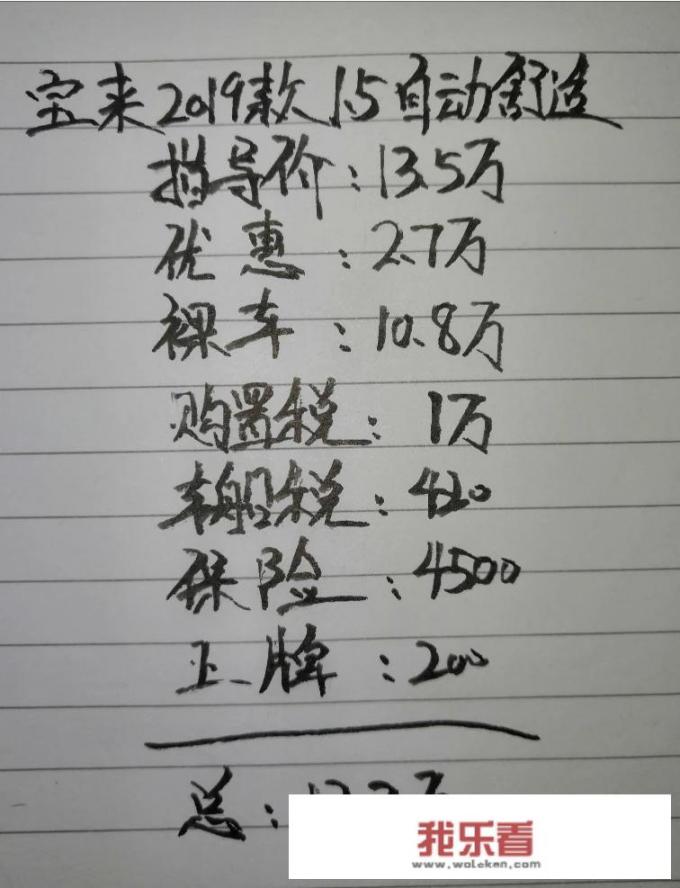 宝来2019款1.5自动舒适
指导价:13.5万
优惠:2.7万
裸车:10.8万
购置税:1万
车船税:420
保险:4500
上牌:200
总:
我乐看
www.woleken.com